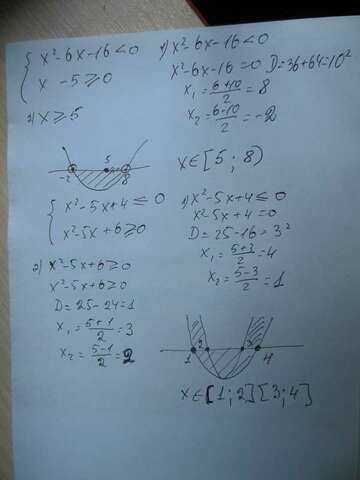 { x²-6x-16<0
x -5≥0
1) x²-6x-16<0
x²-6x-16=0 D=36+64=10²
x₁=(6+10)/2=8
x₂=(6-10)/2=-2
2) x≥5
-2 5 8
x∈[5;8)
{ x²-5x+4≤0
x²-5x+6≥0
1) x²-5x+4≤0
x²-5x+4=0
D=25-16=3²
x₁=(5+3)/2=4
x₂=(5-3)/2=1
2) x²-5x+6≥0
x²-5x+6≥0
D=25-24=1
x₁=(5+1)/2=3
x₂=(5-1)/2=2
1 2 3 4
x∈[1;2][3;4]